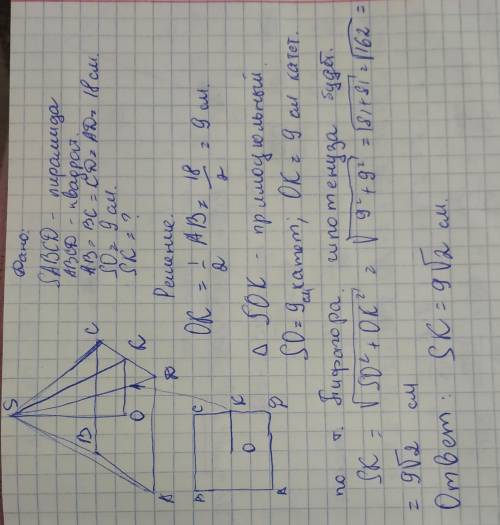 Дано:
SABCD - пирамида
ABCD - квадрат.
AB = BC = CD = AD = 18 см.
SO = 9 см.
SK = ?
Решение.
OK = 1/2 AB = 18/2 = 9 см.
△ SOK - прямоугольный
SO = 9 см катет; OK = 9 см катет.
по т. Пифагора гипотенуза будет.
SK = √SO² + OK² = √9² + 9² = √81 + 81 = √162 =
= 9√2 см
Ответ: SK = 9√2 см.
S
B
C
K
O
D
A
B
C
K
O
A
D